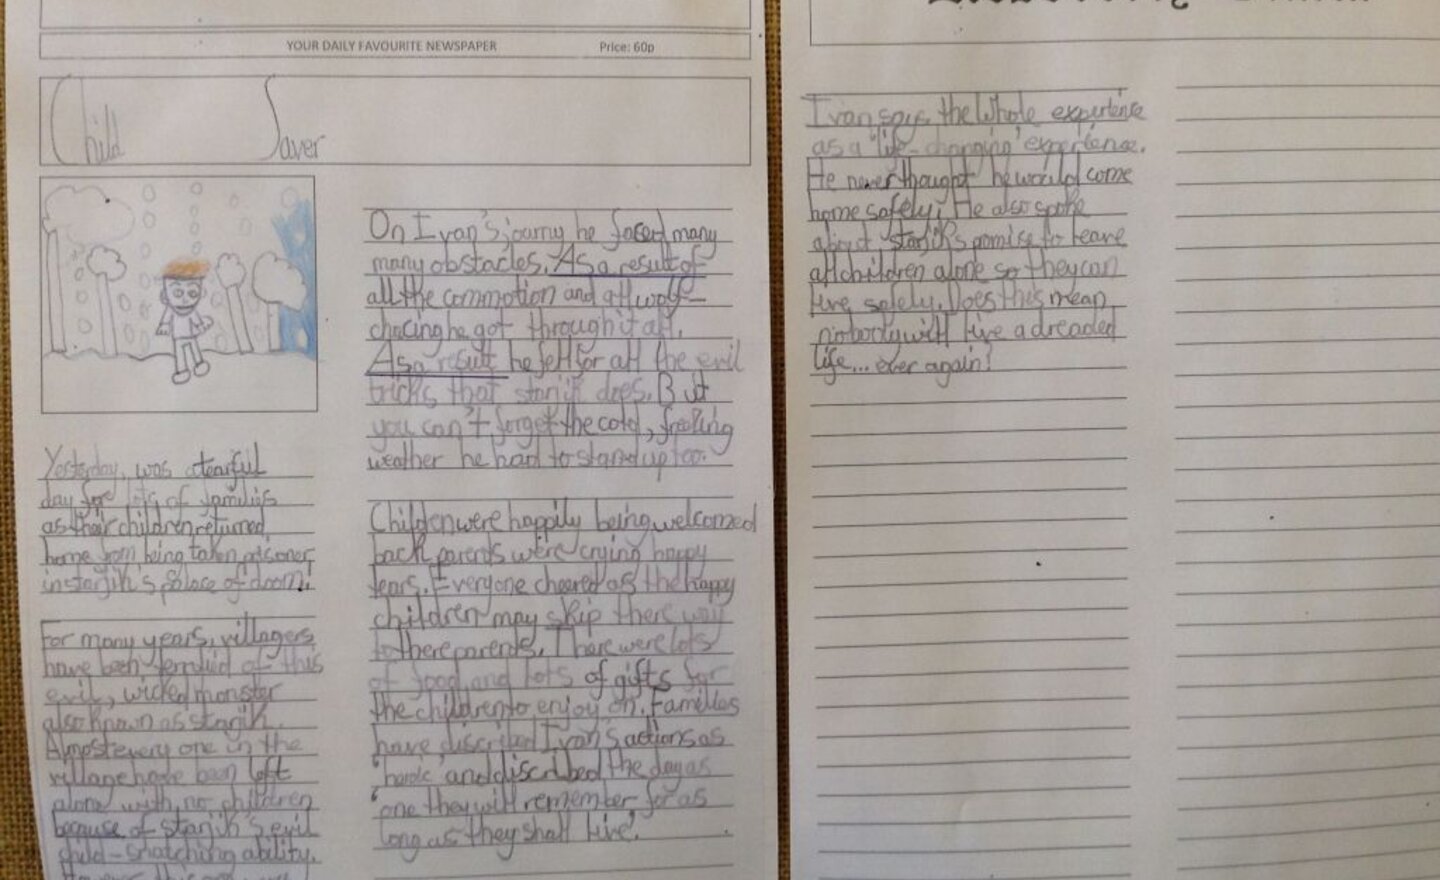 YOUR DAILY FAVOURITE NEWSPAPER Price: 60p
Child Saver
Yesterday, was a tearful
day for lots of families
as their children returned
home from being taken prisoner
in starjik's palace of doom.
For many years, villagers
have been terrified of this
evil, wicked monster
also known as starjik.
Almost every one in the
village have been left
alone with no children
because of starjik's evil
child-snatching ability.
However this
On Ivan's journy he faced many
many obstacles. As a result of
all the commotion and all wolf-
chacing he got through it all.
As a result he fell for all the evil
tricks that starjik does. But
you can't forget the cold, freezing
weather he had to stand up too.
Childen were happily being welcomed
back parents were crying happy
tears. Everyone cheered as the happy
children may skip there way
to there parents. There were lots
of food and lots of gifts for
the children to enjoy on. Families
have discribed Ivan's actions as
'heroic' and discribed the day as
'one they will remember for as
long as they shall live'.
Ivan says the whole experience
as a 'life-changing' experience.
He never thought he would come
home safely. He also spoke
about starjik's promise to leave
all children alone so they can
live safely. Does this mean
nobody will live a dreaded
life... ever again!